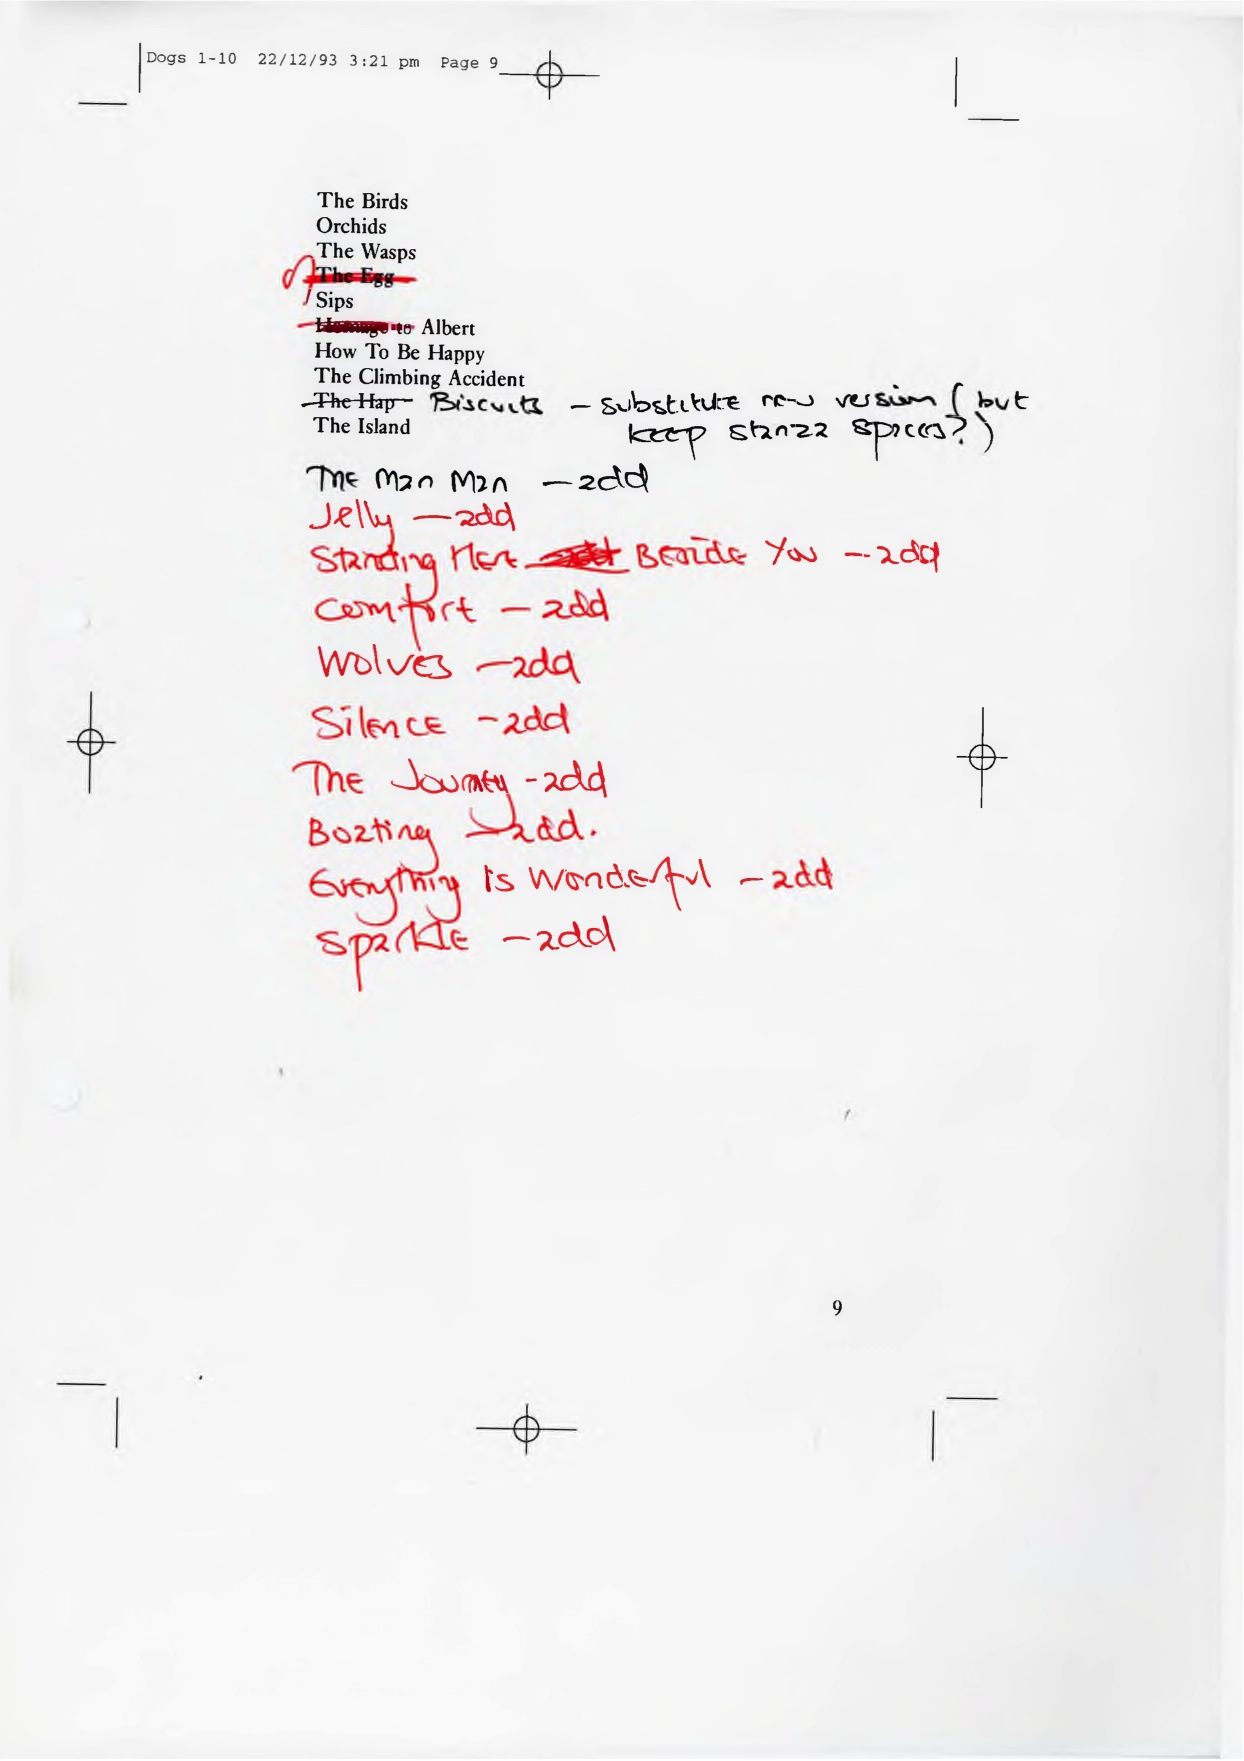 Dogs 1-10 22/12/93 3:21 pm Page 9
The Birds
Orchids
The Wasps
The Egg
Sips
Homage to Albert
How To Be Happy
The Climbing Accident
The Hap Biscuits – substitute new version (but
keep stanza spaces?)
The Island
The Man Man – add
Jelly – add
Standing Here Beside You – add
Comfort – add
Wolves – add
Silence – add
The Journey – add
Boating – add.
Everything is Wonderful – add
Sparkle – add
9